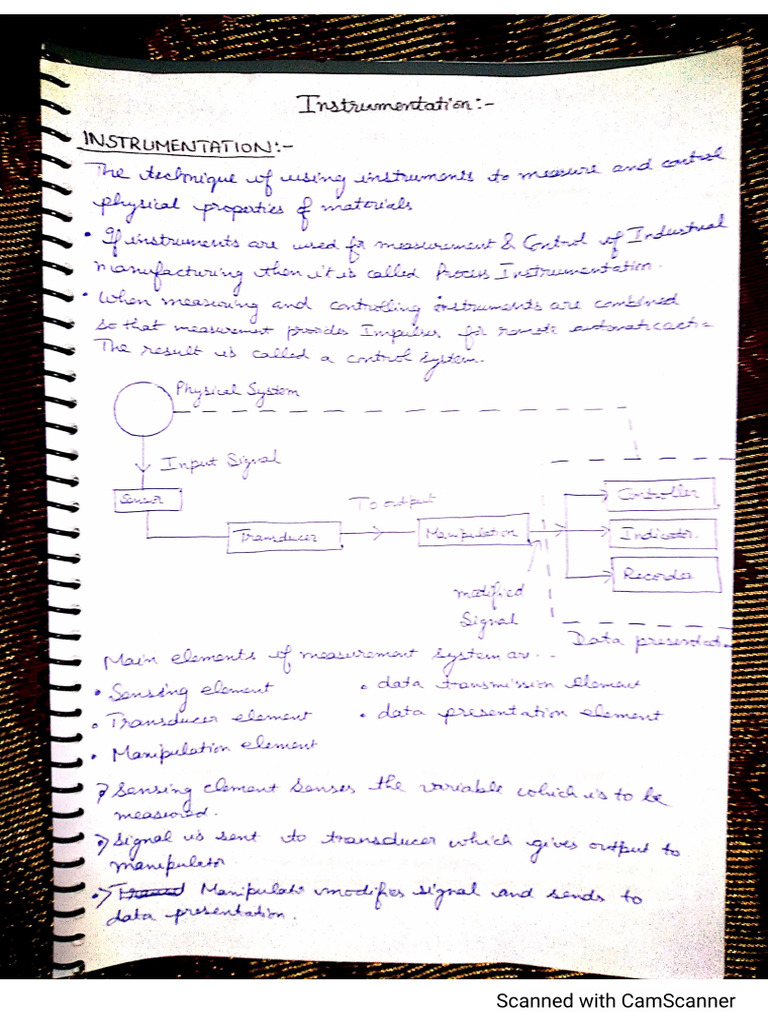 Instrumentation:-
INSTRUMENTATION:-
The technique of using instruments to measure and control
physical properties of materials
• If instruments are used for measurement & Control of Industrial
manufacturing then it is called Process Instrumentation.
• When measuring and controlling instruments are combined
so that measurement provides Impulses for remote automatic
The result is called a control system.
Physical System
Input Signal
Sensor
To output
Transducer
Manipulation
Controller
Indicator.
Recorder
modified
Signal
Data presentation
Main elements of measurement system are...
• Sensing element
• data transmission element
• Transducer element
• data presentation element
• Manipulation element
Sensing element senses the variable which is to be
measured.
Signal is sent to transducer which gives output to
manipulator
Manipulator modifies signal and sends to
data presentation.
Scanned with CamScanner